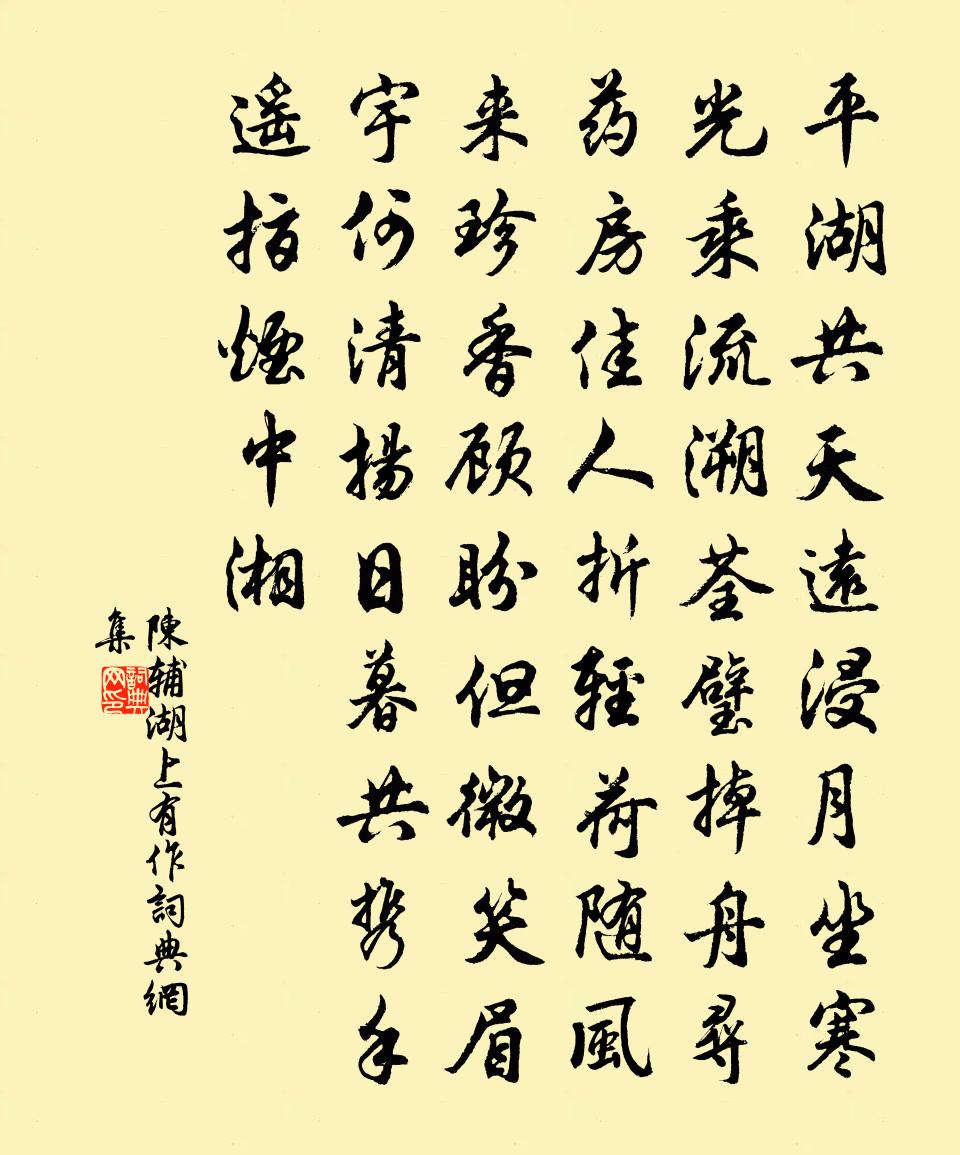 平湖共天遠浸月坐寒
光乘流溯荃璧掉舟尋
药房佳人折輕荷随風
来珍香顾盼但微笑眉
宇何清揚日暮共携手
遥指煙中湘
陳辅湖上有作詞典網
集
詞典
网印